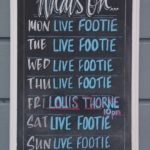 What's On...
MON LIVE FOOTIE
TUE LIVE FOOTIE
WED LIVE FOOTIE
THU LIVE FOOTIE
FRI LOUIS THORNE
10pm
SAT LIVE FOOTIE
SUN LIVE FOOTIE